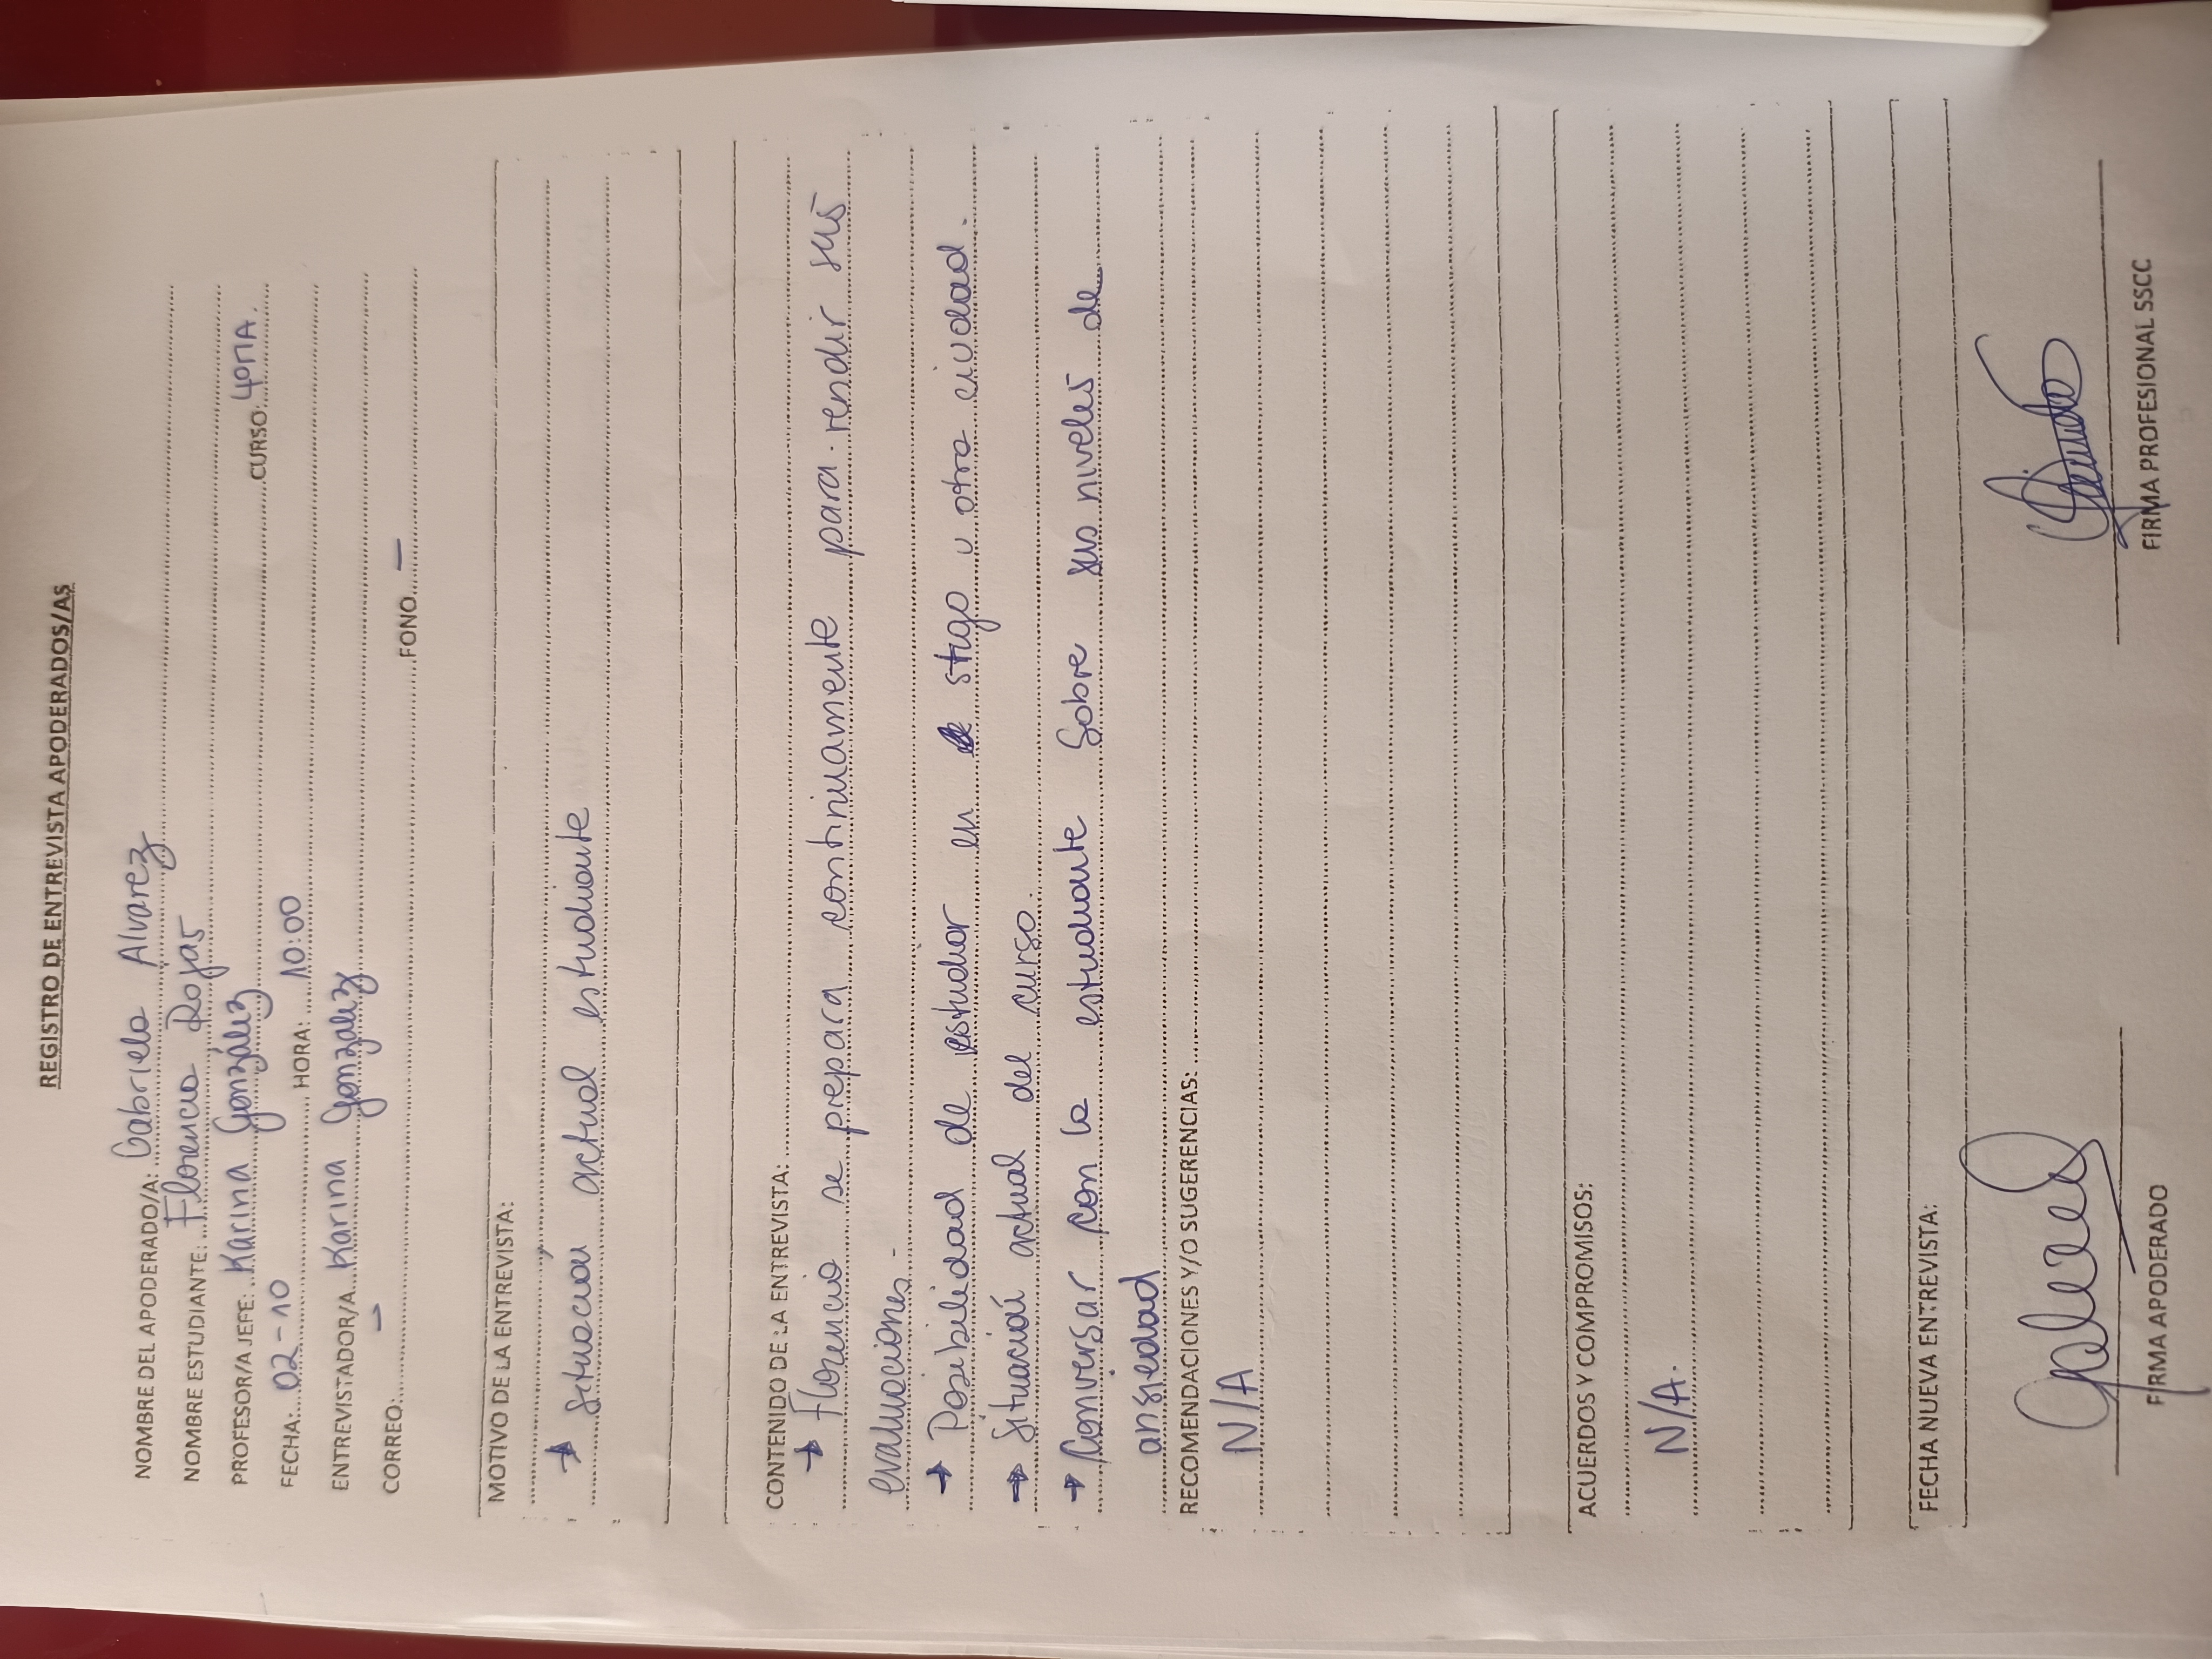 REGISTRO DE ENTREVISTA APODERADOS/AS
NOMBRE DEL APODERADO/A: Gabriela Alvarez
NOMBRE ESTUDIANTE: Florencia Rojas
PROFESOR/A JEFE: Karina González CURSO: 4ºMA.
FECHA: 02-10 HORA: 10:00
ENTREVISTADOR/A Karina González
CORREO: — FONO —
MOTIVO DE LA ENTREVISTA:
→ Situación actual estudiante
CONTENIDO DE LA ENTREVISTA:
→ Florencia se prepara continuamente para rendir sus
evaluaciones.-
→ Posibilidad de estudiar en stgo u otra ciudad.
→ Situación actual del curso.
→ Conversar con la estudiante Sobre sus niveles de
ansiedad
RECOMENDACIONES Y/O SUGERENCIAS:
N/A
ACUERDOS Y COMPROMISOS:
N/A.
FECHA NUEVA ENTREVISTA:
FIRMA APODERADO FIRMA PROFESIONAL SSCC